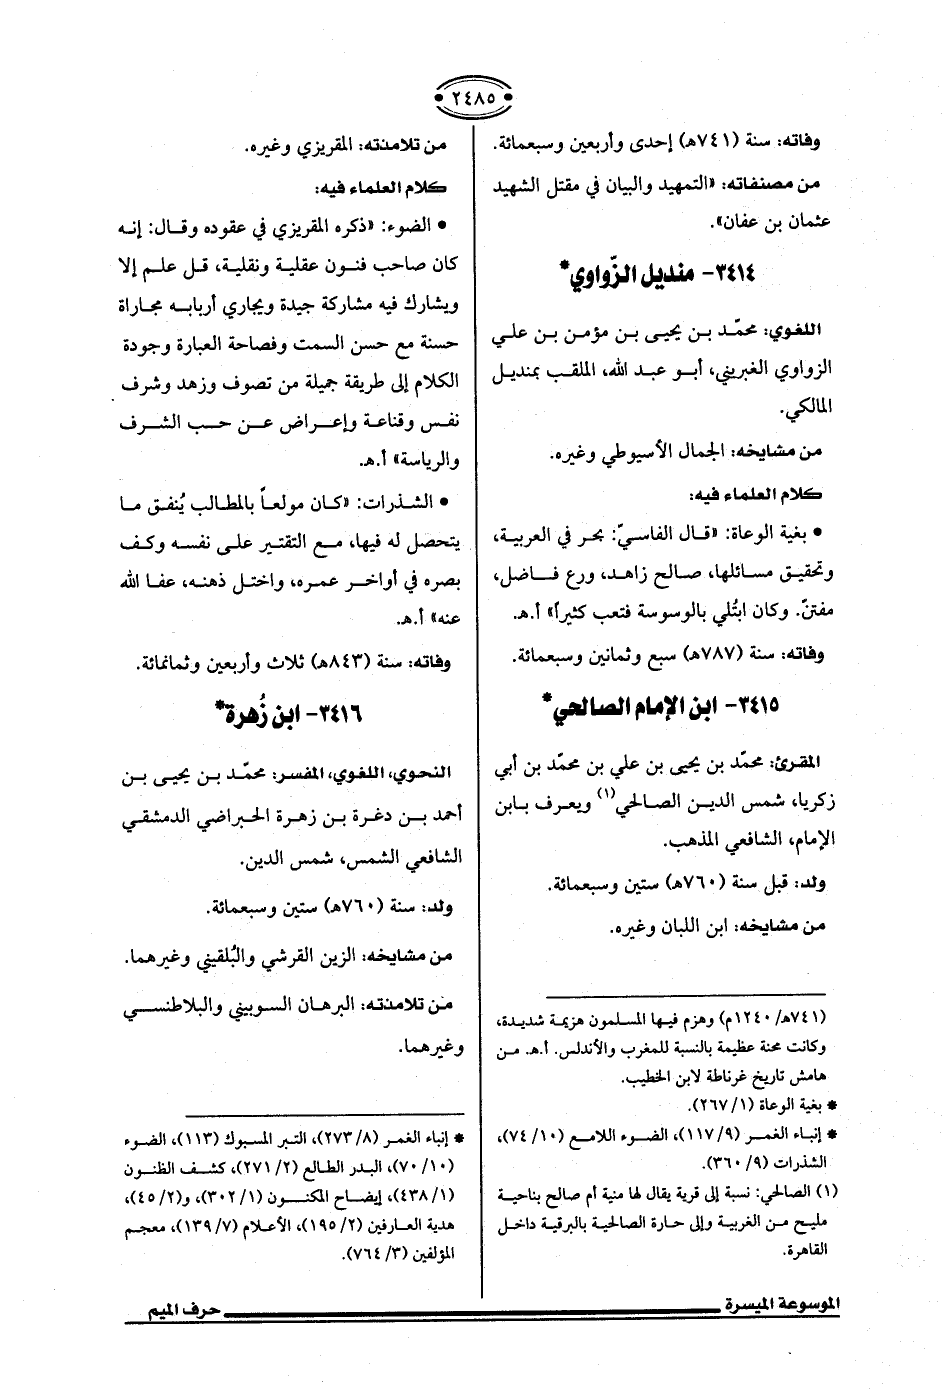 ٢٤٨٥
وفاته: سنة (٧٤١هـ) إحدى وأربعين وسبعمائة.
من مصنفاته: «التمهيد والبيان في مقتل الشهيد
عثمان بن عفان».
٣٤١٤- منديل الزّواوي*
اللغوي: محمّد بن يحيى بن مؤمن بن علي
الزواوي الغبريني، أبو عبد الله، الملقب بمنديل
المالكي.
من مشايخه: الجمال الأسيوطي وغيره.
كلام العلماء فيه:
• بغية الوعاة: «قال الفاسيّ: بحر في العربية،
وتحقيق مسائلها، صالح زاهد، ورع فاضل،
مفتنّ. وكان ابتُلي بالوسوسة فتعب كثيراً» أ.هـ.
وفاته: سنة (٧٨٧هـ) سبع وثمانين وسبعمائة.
٣٤١٥- ابن الإمام الصالحي*
المقرئ: محمّد بن يحيى بن علي بن محمّد بن أبي
زكريا، شمس الدين الصالحي(١) ويعرف بابن
الإمام، الشافعي المذهب.
ولد: قبل سنة (٧٦٠هـ) ستين وسبعمائة.
من مشايخه: ابن اللبان وغيره.
(٧٤١هـ/ ١٢٤٠م) وهزم فيها المسلمون هزيمة شديدة،
وكانت محنة عظيمة بالنسبة للمغرب والأندلس. أ.هـ. من
هامش تاريخ غرناطة لابن الخطيب.
* بغية الوعاة (١/ ٢٦٧).
* إنباء الغمر (٩/ ١١٧)، الضوء اللامع (١٠/ ٧٤)،
الشذرات (٩/ ٣٦٠).
(١) الصالحي: نسبة إلى قرية يقال لها منية أم صالح بناحية
مليج من الغربية وإلى حارة الصالحية بالبرقية داخل
القاهرة.
من تلامذته: المقريزي وغيره.
كلام العلماء فيه:
• الضوء: «ذكره المقريزي في عقوده وقال: إنه
كان صاحب فنون عقلية ونقلية، قل علم إلا
ويشارك فيه مشاركة جيدة ويجاري أربابه مجاراة
حسنة مع حسن السمت وفصاحة العبارة وجودة
الكلام إلى طريقة جميلة من تصوف وزهد وشرف
نفس وقناعة وإعراض عن حب الشرف
والرياسة» أ.هـ.
• الشذرات: «كان مولعاً بالمطالب يُنفق ما
يتحصل له فيها، مع التقتير على نفسه وكف
بصره في أواخر عمره، واختل ذهنه، عفا الله
عنه» أ.هـ.
وفاته: سنة (٨٤٣هـ) ثلاث وأربعين وثمانمائة.
٣٤١٦- ابن زُهرة*
النحوي، اللغوي، المفسر: محمّد بن يحيى بن
أحمد بن دغرة بن زهرة الحبراضي الدمشقي
الشافعي الشمس، شمس الدين.
ولد: سنة (٧٦٠هـ) ستين وسبعمائة.
من مشايخه: الزين القرشي والبُلقيني وغيرهما.
من تلامذته: البرهان السوبيني والبلاطنسي
وغيرهما.
* إنباء الغمر (٨/ ٢٧٣)، التبر المسبوك (١١٣)، الضوء
(١٠/ ٧٠)، البدر الطالع (٢/ ٢٧١)، كشف الظنون
(١/ ٤٣٨)، إيضاح المكنون (١/ ٣٠٢)، و(٢/ ٤٥)،
هدية العارفين (٢/ ١٩٥)، الأعلام (٧/ ١٣٩)، معجم
المؤلفين (٣/ ٧٦٤).
الموسوعة الميسرة حرف الميم